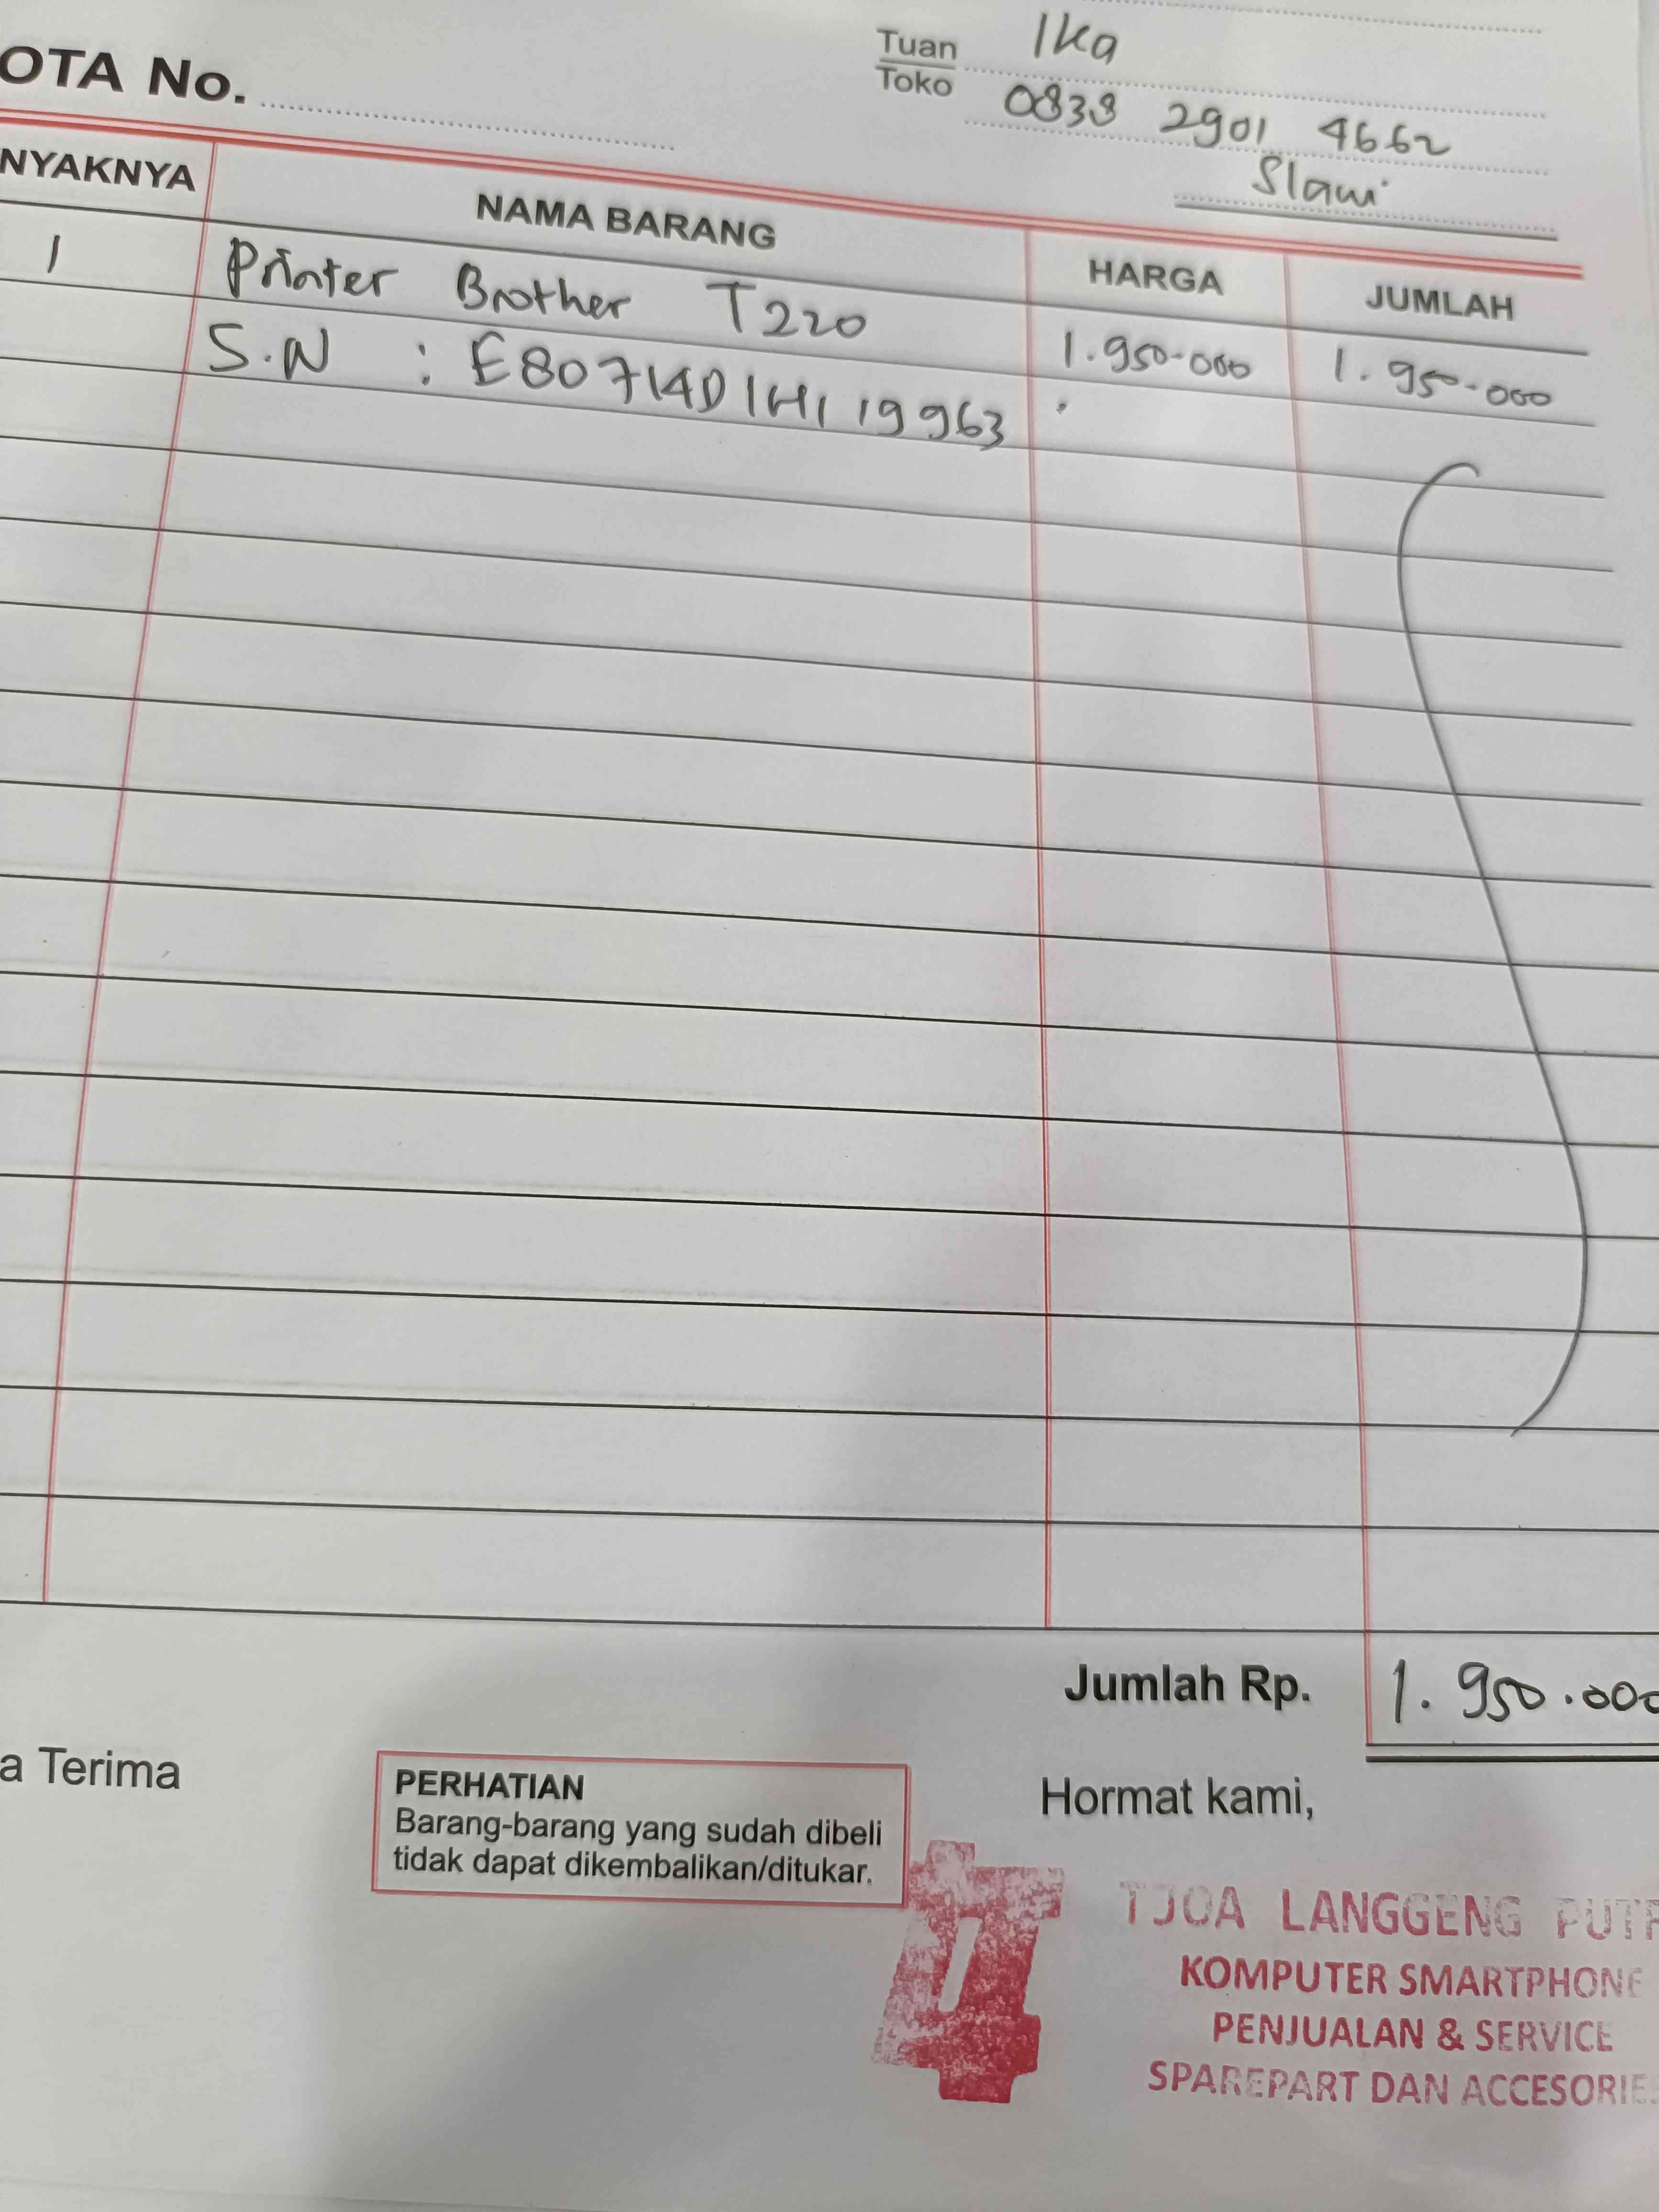 OTA No.
Tuan Ika
Toko 0838 2901 4662
Slawi
NYAKNYA NAMA BARANG HARGA JUMLAH
1 Printer Brother T220 1.950.000 1.950.000
S.N : E80714D1H119963
Jumlah Rp. 1.950.000
a Terima
PERHATIAN
Barang-barang yang sudah dibeli
tidak dapat dikembalikan/ditukar.
Hormat kami,
TJOA LANGGENG PUTR
KOMPUTER SMARTPHONE
PENJUALAN & SERVICE
SPAREPART DAN ACCESORIE